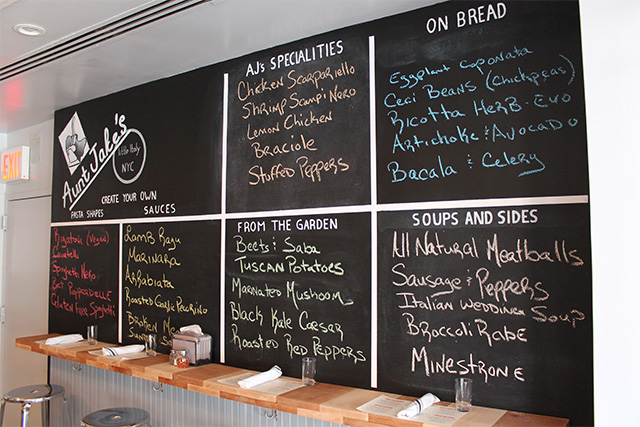 EXIT
Aunt Jake's
Little Italy
NYC
CREATE YOUR OWN
PASTA SHAPES
SAUCES
Rigatoni (Vegan)
Cavatelli
Spaghetti Nero
Beet Papperdelle
Gluten Free Spaghetti
Lamb Ragu
Marinara
Arrabiata
Roasted Garlic Pecorino
AJ's SPECIALITIES
Chicken Scarpariello
Shrimp Scampi Nero
Lemon Chicken
Braciole
Stuffed Peppers
ON BREAD
Eggplant Caponata
Ceci Beans (Chickpeas)
Ricotta Herb-Evo
Artichoke & Avocado
Bacala & Celery
FROM THE GARDEN
Beets & Saba
Tuscan Potatoes
Marinated Mushroom
Black Kale Caesar
Roasted Red Peppers
SOUPS AND SIDES
All Natural Meatballs
Sausage & Peppers
Italian Wedding Soup
Broccoli Rabe
Minestrone